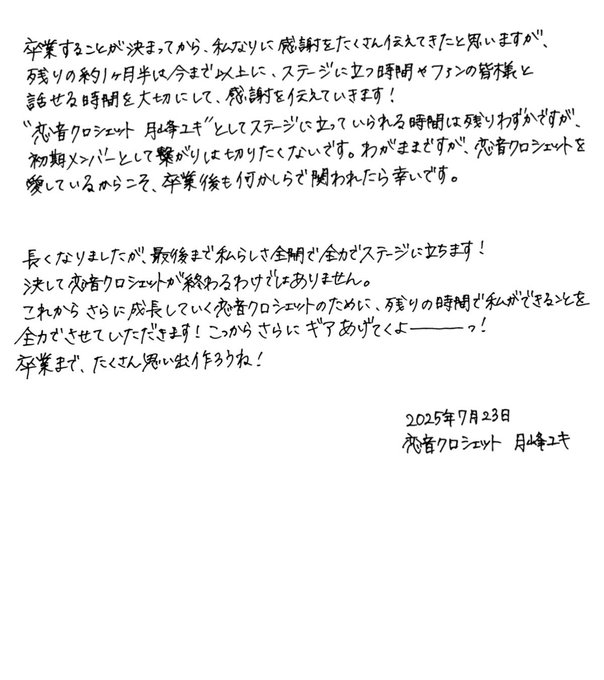 卒業することが決まってから、私なりに感謝をたくさん伝えてきたと思いますが、
残りの約1ヶ月半は今まで以上に、ステージに立つ時間やファンの皆様と
話せる時間を大切にして、感謝を伝えていきます！
"恋音クロシェット 月峰ユキ"としてステージに立っていられる時間は残りわずかですが、
初期メンバーとして繋がりは切りたくないです。わがままですが、恋音クロシェットを
愛しているからこそ、卒業後も何かしらで関われたら幸いです。
長くなりましたが、最後まで私らしさ全開で全力でステージに立ちます！
決して恋音クロシェットが終わるわけではありません。
これからさらに成長していく恋音クロシェットのために、残りの時間で私ができることを
全力でさせていただきます！こっからさらにギアあげてくよーーーっ！
卒業まで、たくさん思い出作ろうね！
2025年7月23日
恋音クロシェット 月峰ユキ